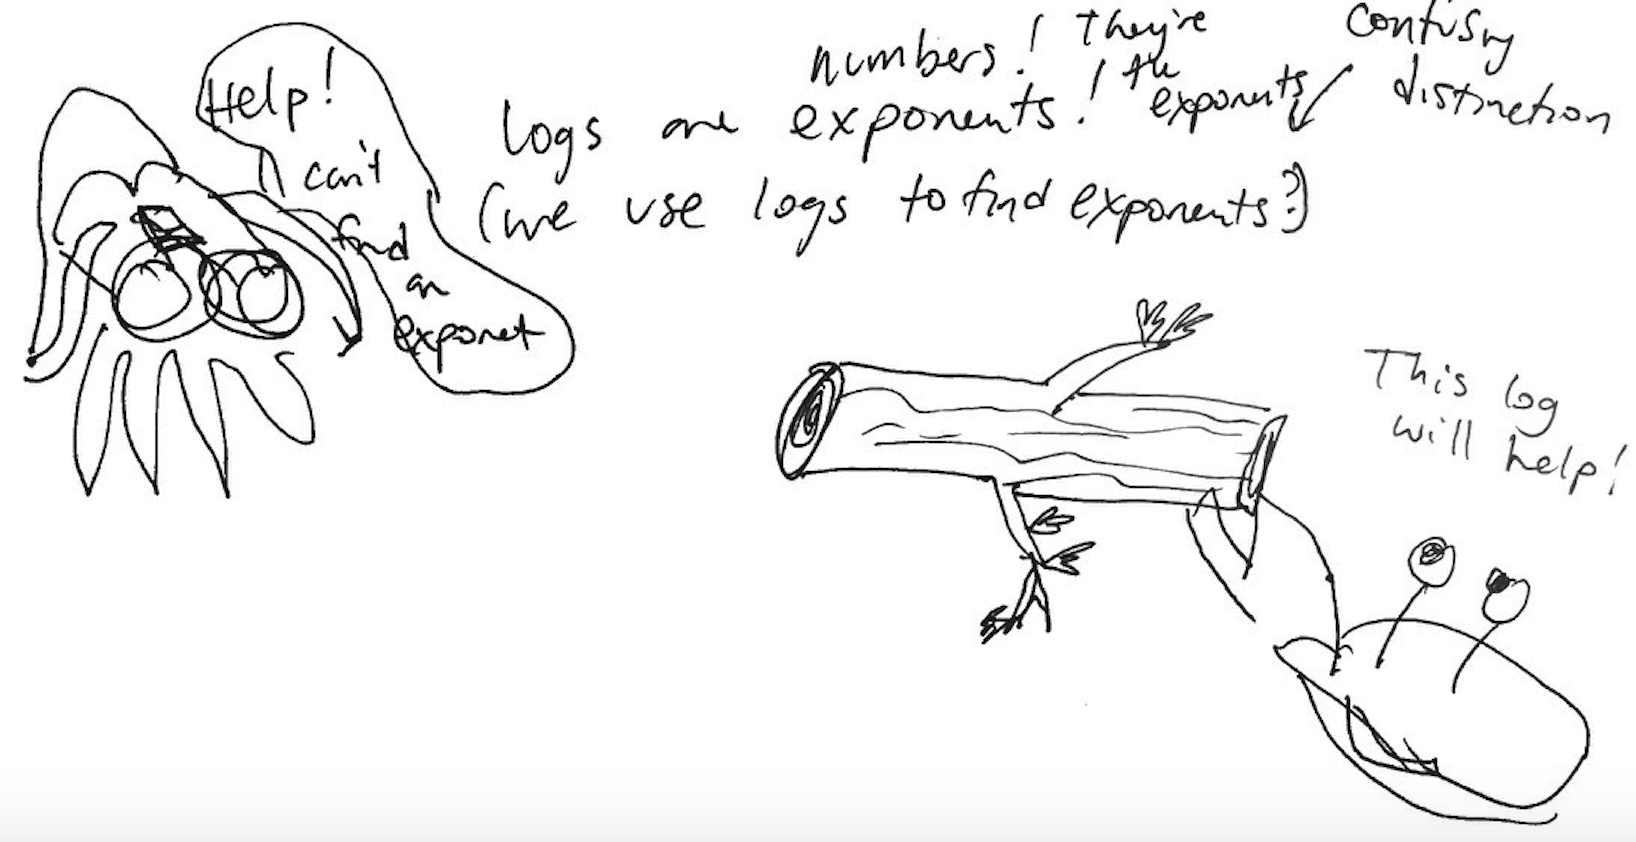 Help!
can't
find
an
exponet
numbers! They're
the
Logs are exponents! exponents
(we use logs to find exponents?)
confusing
distinction
This log
will help!